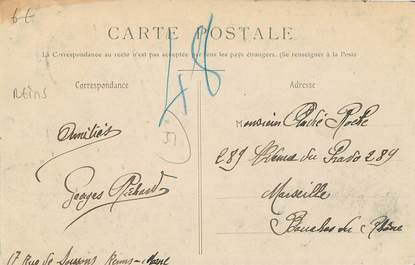 6t
48
CARTE POSTALE
La Correspondance au recto n'est pas acceptée par tous les pays étrangers. (Se renseigner à la Poste
Correspondance
Adresse
REIMS
51
Amitiés
Georges Richard
17 Rue de Soissons Reims-Marne
Monsieur André Roche
289 Avenue du Prado 289
Marseille
Bouches du Rhône